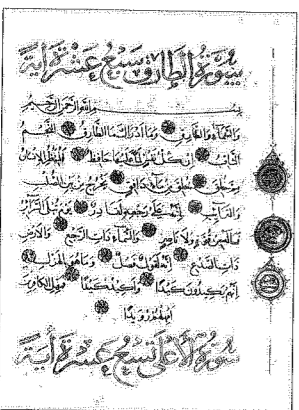 سورة الطارق سبع عشرة آية
بسم الله الرحمن الرحيم
والسماء والطارق وما أدراك ما الطارق النجم
الثاقب إن كل نفس لما عليها حافظ فلينظر الإنسان
مم خلق خلق من ماء دافق يخرج من بين الصلب
والترائب إنه على رجعه لقادر يوم تبلى السرائر
فما له من قوة ولا ناصر والسماء ذات الرجع والأرض
ذات الصدع إنه لقول فصل وما هو بالهزل
إنهم يكيدون كيدا وأكيد كيدا فمهل الكافرين
أمهلهم رويدا
سورة الأعلى تسع عشرة آية